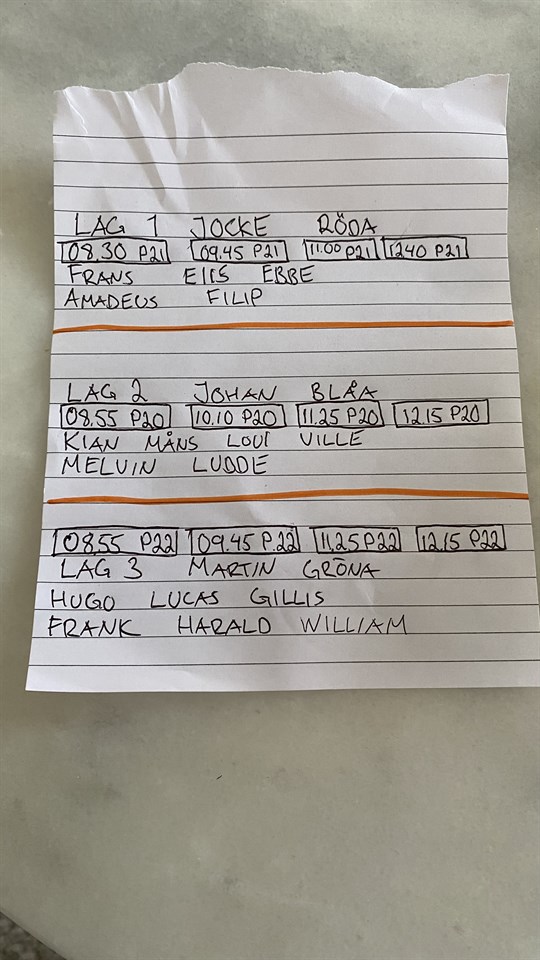 LAG 1 JOCKE RÖDA
08.30 P21 09.45 P21 11.00 P21 1240 P21
FRANS EBBE
AMADEUS FILIP
LAG 2 JOHAN BLÅA
08.55 P20 10.10 P20 11.25 P20 12.15 P20
KIAN MÅNS LOUI VILLE
MELVIN LUDDE
08.55 P22 09.45 P.22 11.25 P22 12.15 P22
LAG 3 MARTIN GRÖNA
HUGO LUCAS GILLIS
FRANK HARALD WILLIAM